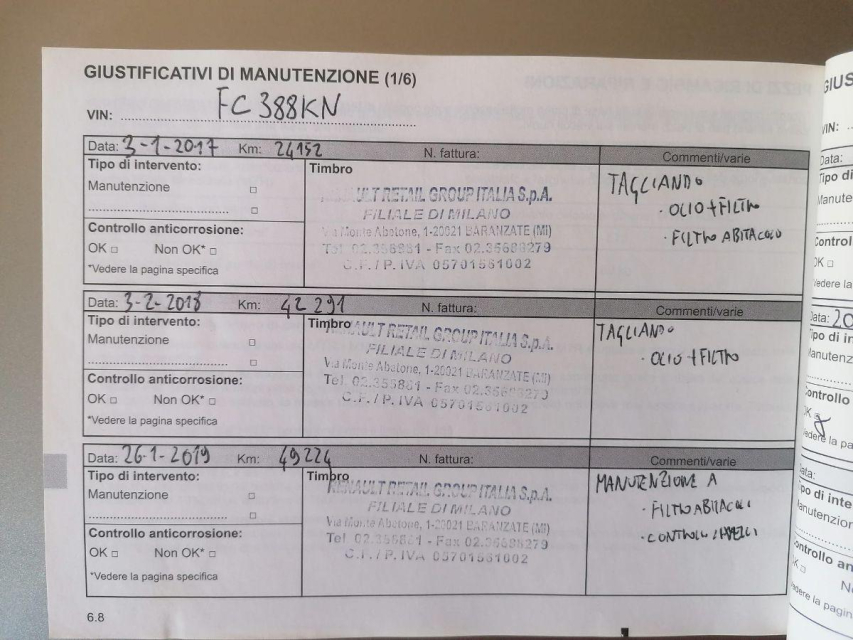 GIUSTIFICATIVI DI MANUTENZIONE (1/6)
VIN: FC 388KN
Data: 3-1-2017 Km: 24152 N. fattura: Commenti/varie
Tipo di intervento:
Manutenzione
Controllo anticorrosione:
OK Non OK*
*Vedere la pagina specifica
Timbro
ULT RETAIL GROUP ITALIA S.p.A.
FILIALE DI MILANO
Via Monte Abetone, 1-20021 BARANZATE (MI)
Fax 02.35688279
C.F. / P. IVA 05701561002
TAGLIANDO
- OLIO + FILTRO
- FILTRO ABITACOLO
Data: 3-2-2018 Km: 42 291 N. fattura: Commenti/varie
Tipo di intervento:
Manutenzione
Controllo anticorrosione:
OK Non OK*
*Vedere la pagina specifica
Timbro
AULT RETAIL GROUP ITALIA S.p.A.
FILIALE DI MILANO
Via Monte Abetone, 1-20021 BARANZATE (MI)
Tel. Fax
C.F. / P. IVA 05701561002
TAGLIANDO
- OLIO + FILTRO
Data: 26-1-2019 Km: 49224 N. fattura: Commenti/varie
Tipo di intervento:
Manutenzione
Controllo anticorrosione:
OK Non OK*
*Vedere la pagina specifica
Timbro
RENAULT RETAIL GROUP ITALIA S.p.A.
FILIALE DI MILANO
Via Monte Abetone, 1-20021 BARANZATE (MI)
Tel. Fax
C.F. / P. IVA 05701561002
MANUTENZIONE A
- FILTRO ABITACOLO
- CONTROLLI
6.8